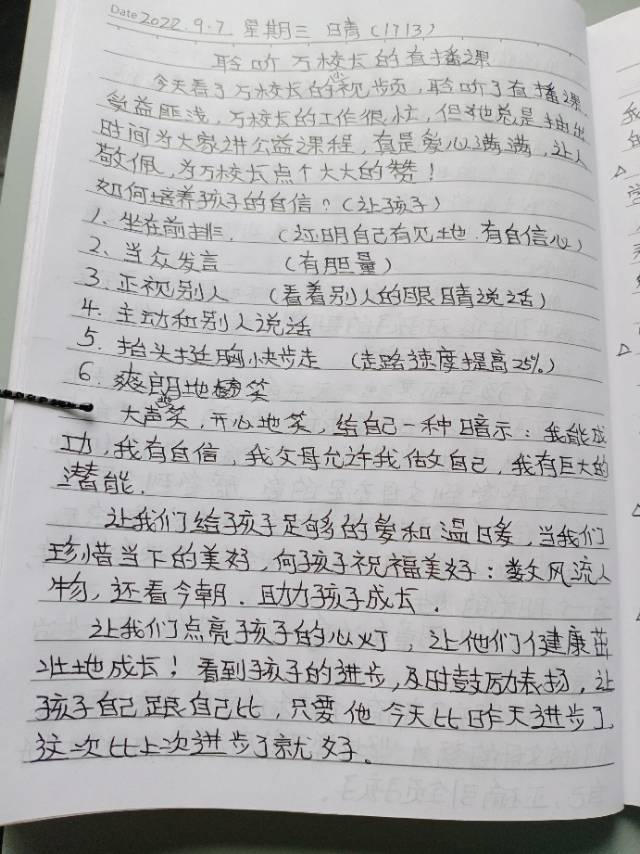 Date 2022.9.7 星期三 晴(1713)
聆听万校长的直播课
今天看了万校长的视频,聆听了直播课
受益匪浅,万校长的工作很忙,但他总是抽出
时间为大家讲公益课程,真是爱心满满,让人
敬佩,为万校长点个大大的赞!
如何培养孩子的自信?(让孩子)
1、坐在前排.(证明自己有见地.有自信心)
2、当众发言(有胆量)
3、正视别人(看着别人的眼睛说话)
4、主动和别人说话
5、抬头挺胸快步走(走路速度提高25%)
6、爽朗地笑
大声笑,开心地笑,给自己一种暗示:我能成
功,我有自信,我父母允许我做我自己,我有巨大的
潜能.
让我们给孩子足够的爱和温暖,当我们
珍惜当下的美好,向孩子祝福美好:数风流人
物,还看今朝.助力孩子成长.
让我们点亮孩子的心灯,让他们健康茁
壮地成长!看到孩子的进步,及时鼓励表扬,让
孩子自己跟自己比,只要他今天比昨天进步了,
这次比上次进步了就好.